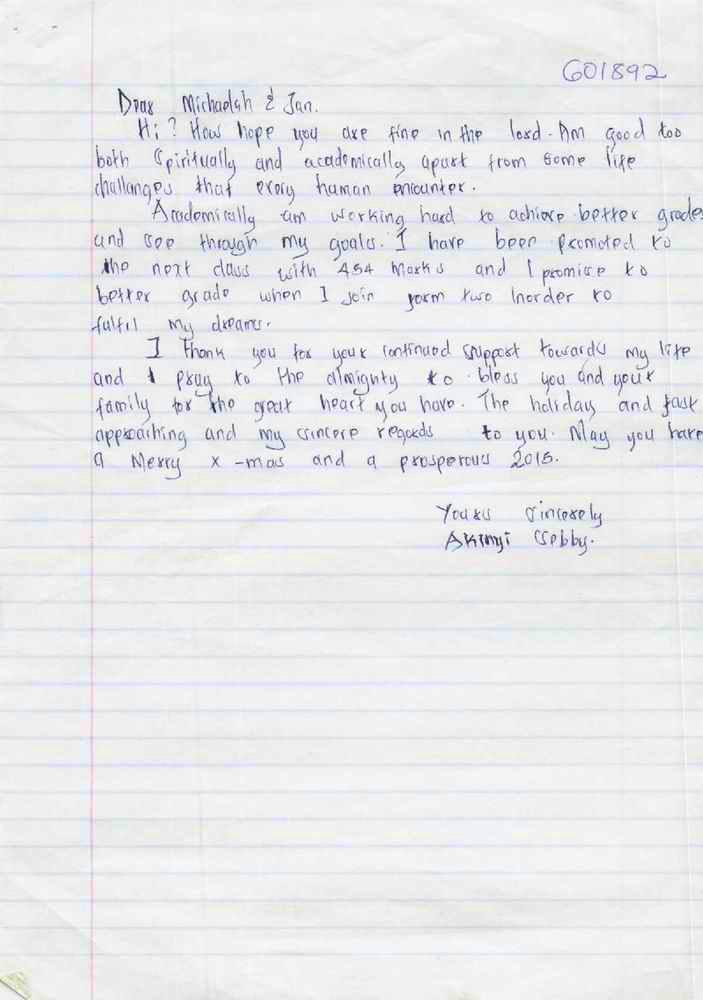 G01892
Dear Michaelah & Jan.
Hi? How hope you are fine in the lord. Am good too
both Spiritually and academically apart from some life
challanges that every human encounter.
Academically am working hard to achieve better grades
and see through my goals. I have been promoted to
the next class with 454 Marks and I promise to
better grade when I join form two inorder to
fulfil my dreams.
I Thank you for your continued support towards my life
and I pray to the almighty to bless you and your
family for the great heart you have. The holiday and fast
approaching and my sincere regards to you. May you have
a Merry x-mas and a prosperous 2015.
Yours Sincerely
Akinyi